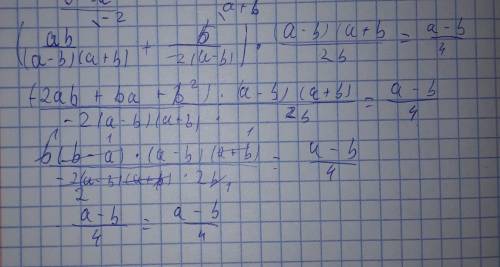 -2
a+b
(ab/((a-b)(a+b)) + b/(-2(a-b))) · ((a-b)(a+b)/2b = (a-b)/4
(-2ab + ba + b²) · (a-b)(a+b)/(-2(a-b)(a+b) · 2b) = (a-b)/4
b(b-a) · (a-b)(a+b)/(-2(a-b)(a+b) · 2b) = (a-b)/4
(a-b)/4 = (a-b)/4